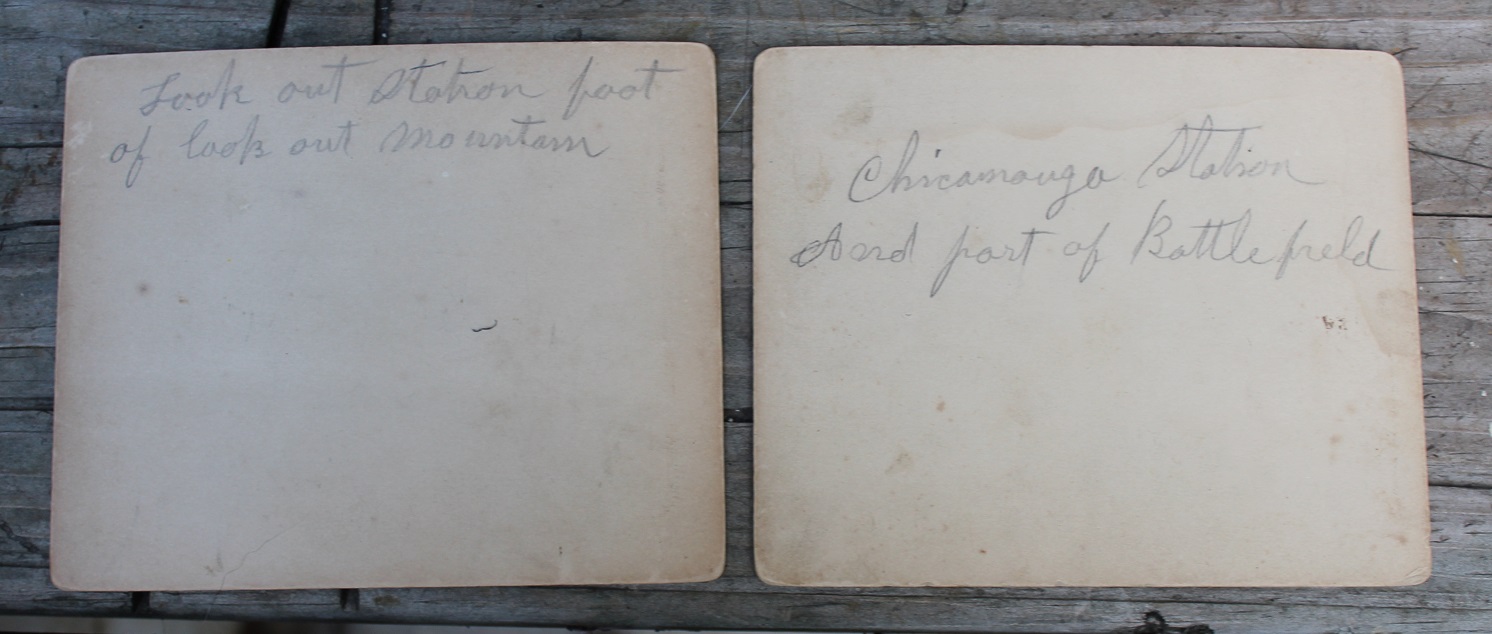 Look out Station foot
of look out Mountain
Chicamauga Station
And part of Battlefield